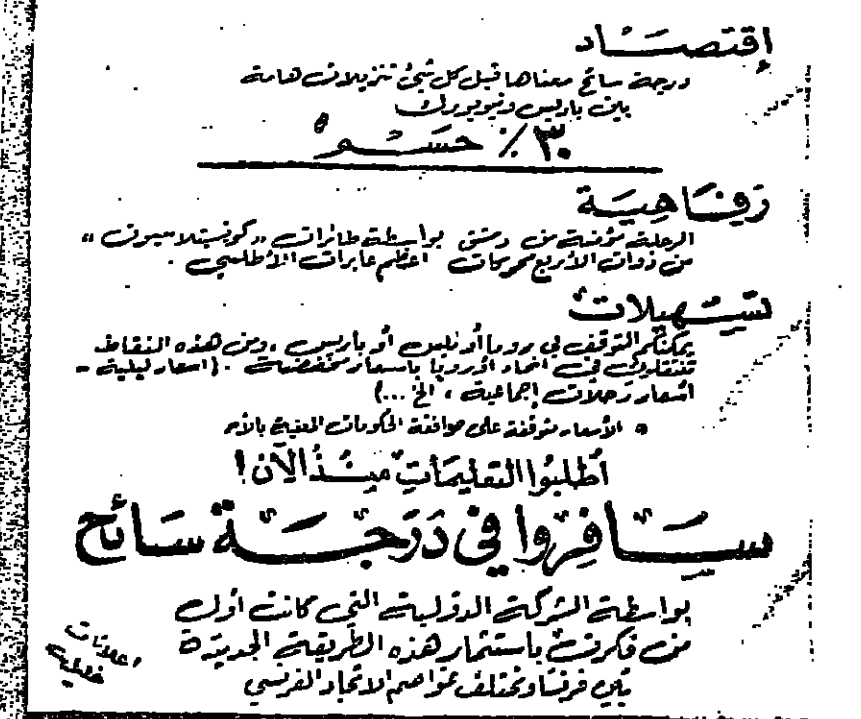 إقتصَاد
درجة سائح معناها قبل كل شيئ تنزيلات هامة
بين باريس ونيويورك
٣٠٪ حسم
رَفاهيَة
الرحلة مؤمنة من دمشق بواسطة طائرات «كونستلاسيون»
من ذوات الأربع محركات اعظم عابرات الأطلسي .
تسهيلات
يمكنكم التوقف في روما أو نيس أو باريس ، ومن هذه النقاط
تنتقلون في انحاء أوروبا باسعار مخفضة . (اسعار ليلية -
أسعار رحلات إجماعية ، الخ ...)
• الأسعار متوقفة على موافقة الحكومات المعنية بالأمر
أطلبوا التعليمات منذُ الآن !
سَافِروا في دَرَجَة سَائح
بواسطة الشركة الدولية التي كانت أول
من فكرت باستثمار هذه الطريقة الجديدة
بين فرنسا ومختلف عواصم الاتحاد الفرنسي
اعلانات